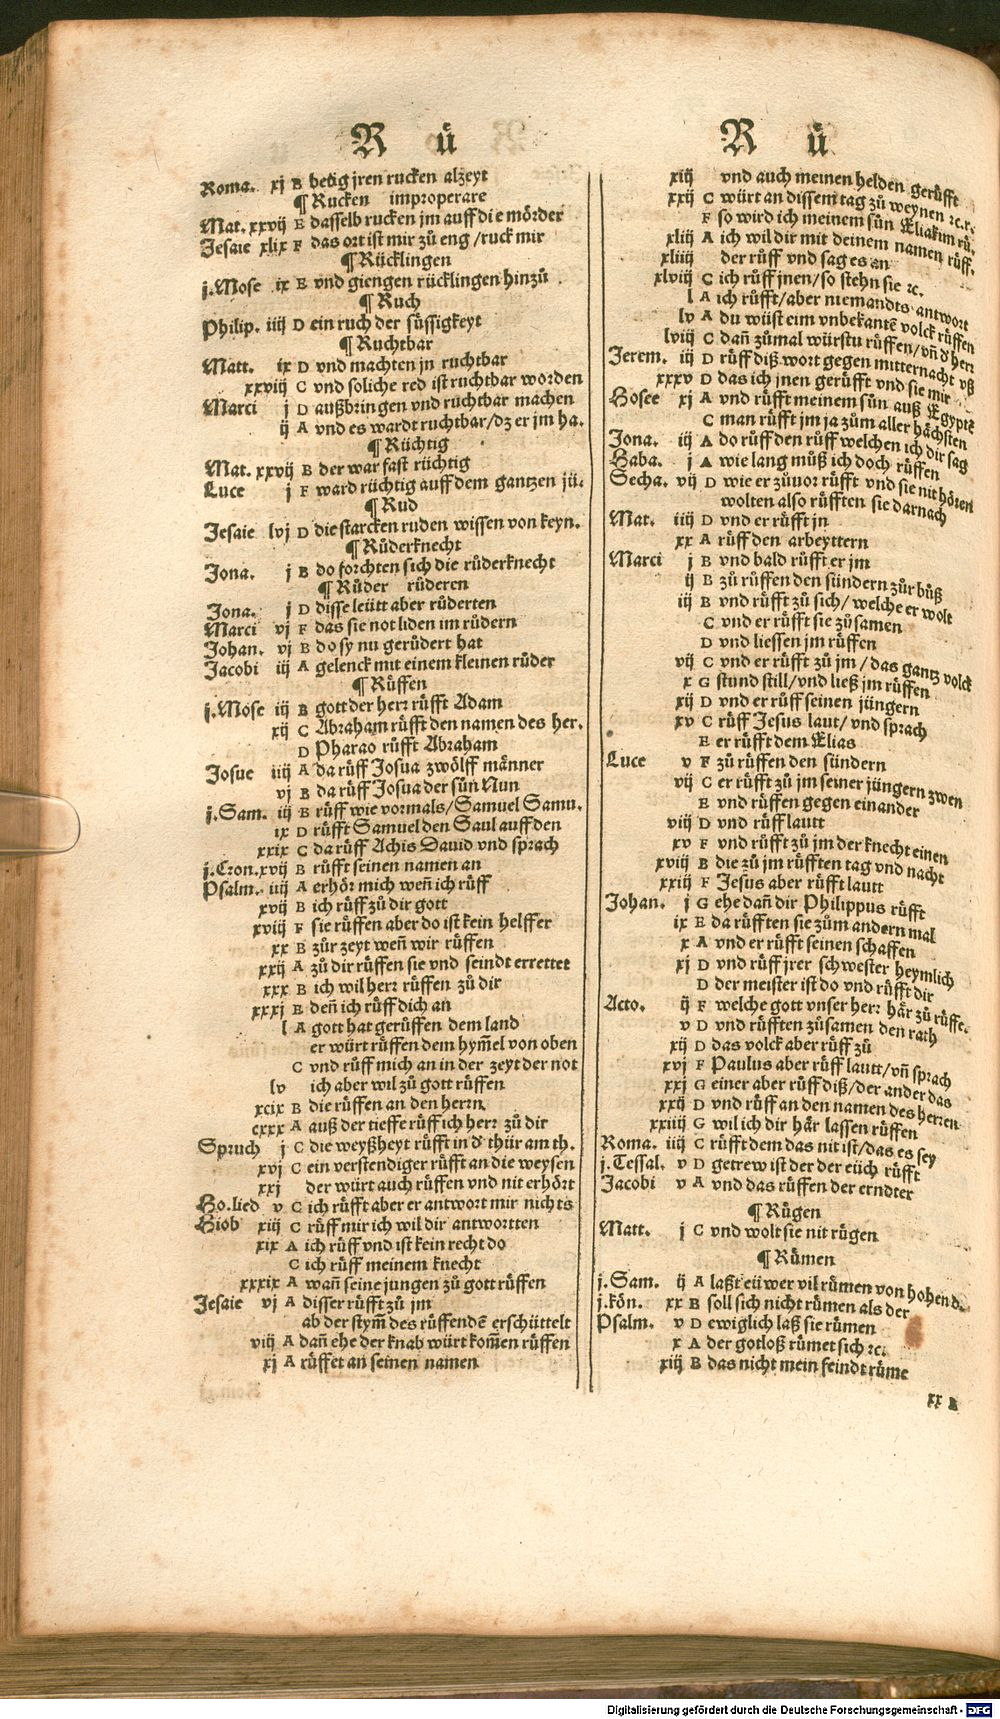 R ů
Roma. xj B betig jren rucken alzeyt
¶ Rucken improperare
Mat. xxvij E dasselb rucken jm auff die mörder
Jesaie xlix F das ort ist mir zů eng / ruck mir
¶ Rücklingen
j. Mose ix E vnd giengen rücklingen hinzů
¶ Ruch
Philip. iiij D ein ruch der süssigkeyt
¶ Ruchtbar
Matt. ix D vnd machten jn ruchtbar
xxviij C vnd soliche red ist ruchtbar worden
Marci j D außbringen vnd ruchtbar machen
ij A vnd es wardt ruchtbar / dz er jm ha.
¶ Rüchtig
Mat. xxvij B der war fast rüchtig
Luce j F ward rüchtig auff dem gantzen jü.
¶ Rud
Jesaie lvj D die starcken ruden wissen von keyn.
¶ Růderknecht
Jona. j B do forchten sich die růderknecht
¶ Růder růderen
Jona. j D disse leütt aber růderten
Marci vj F das sie not liden im růdern
Johan. vj B do sy nu gerůdert hat
Jacobi iij A gelenck mit einem kleinen růder
¶ Růffen
j. Mose iij B gott der herr růfft Adam
xij C Abraham růfft den namen des her.
D Pharao růfft Abraham
Josue iiij A da růff Josua zwölff männer
vj B da růff Josua der sün Nun
j. Sam. iij B růff wie vormals / Samuel Samu.
ix D růfft Samuel den Saul auff den
xxix C da růff Achis Dauid vnd sprach
j. Cron. xvij B růfft seinen namen an
Psalm. iiij A erhör mich weñ ich růff
xvij B ich růff zů dir gott
xviij F sie růffen aber do ist kein helffer
xx B zůr zeyt weñ wir růffen
xxij A zů dir růffen sie vnd seindt errettet
xxx B ich wil herr růffen zů dir
xxxj E deñ ich růff dich an
l A gott hat gerůffen dem land
er würt růffen dem hym̃el von oben
C vnd růff mich an in der zeyt der not
lv ich aber wil zů gott růffen
xcix B die růffen an den herrn
cxxx A auß der tieffe růff ich herr zů dir
Spruch j C die weyßheyt růfft in d' thür am th.
xvj C ein verstendiger růfft an die weysen
xxj der würt auch růffen vnd nit erhört
Ho. lied v C ich růfft aber er antwort mir nichts
Hiob xiij C růff mir ich wil dir antwortten
xix A ich růff vnd ist kein recht do
C ich růff meinem knecht
xxxix A wañ seine jungen zů gott růffen
Jesaie vj A disser růfft zů jm
ab der stym̃ des růffendē erschüttelt
viij A dañ ehe der knab würt kom̃en růffen
xj A růffet an seinen namen
R ů
xiij vnd auch meinen helden gerůfft
xxij C würt an dissem tag zů weynen ꝛc. r.
F so wird ich meinem sün Eliakim rů.
xliij A ich wil dir mit deinem namen růff.
xliiij der růff vnd sag es an
xlviij C ich růff jnen / so stehn sie ꝛc.
l A ich růfft / aber niemandts antwort
lv A du wüst eim vnbekantē volck růffen
lviij C dañ zůmal würstu růffen / vñ d' herr
Jerem. iij D růff diß wort gegen mitternacht vß
xxxv D das ich jnen gerůfft vnd sie mir
Hosee xj A vnd růfft meinem sün auß Egyptē
C man růfft jm ja zům aller hächsten
Jona. iij A do růff den růff welchen ich dir sag
Haba. j A wie lang můß ich doch růffen
Secha. vij D wie er zůuor růfft vnd sie nit hören
wolten also růfften sie darnach
Mat. iiij D vnd er růfft jn
xx A růff den arbeyttern
Marci j B vnd bald růfft er jm
ij B zů růffen den sündern zůr bůß
iij B vnd růfft zů sich / welche er wolt
C vnd er růfft sie zůsamen
D vnd liessen jm růffen
vij C vnd er růfft zů jm / das gantz volck
x G stund still / vnd ließ jm růffen
xij D vnd er růff seinen jüngern
xv C růff Jesus laut / vnd sprach
E er růfft dem Elias
Luce v F zů růffen den sündern
vij C er růfft zů jm seiner jüngern zwen
E vnd růffen gegen einander
viij D vnd růff lautt
xv F vnd růfft zů jm der knecht einen
xviij B die zů jm růfften tag vnd nacht
xxiij F Jesus aber růfft lautt
Johan. j G ehe dañ dir Philippus růfft
ix E da růfften sie zům andern mal
x A vnd er růfft seinen schaffen
xj D vnd růff jrer schwester heymlich
D der meister ist do vnd růfft dir
Acto. ij F welche gott vnser herr här zů růffe.
v D vnd růfften zůsamen den rath
xij D das volck aber růff zů
xvj F Paulus aber růff lautt / vñ sprach
xxj G einer aber růff diß / der ander das
xxij D vnd růff an den namen des herren
xxiiij G wil ich dir här lassen růffen
Roma. iiij C růfft dem das nit ist / das es sey
j. Tessal. v D getrew ist der der eüch růfft
Jacobi v A vnd das růffen der erndter
¶ Rügen
Matt. j C vnd wolt sie nit rügen
¶ Růmen
j. Sam. ij A laßt eüwer vil růmen von hohen d.
j. kön. xx B soll sich nicht růmen als der
Psalm. v D ewiglich laß sie růmen
x A der gotloß růmet sich ꝛc.
xiij B das nicht mein feindt růme
xx